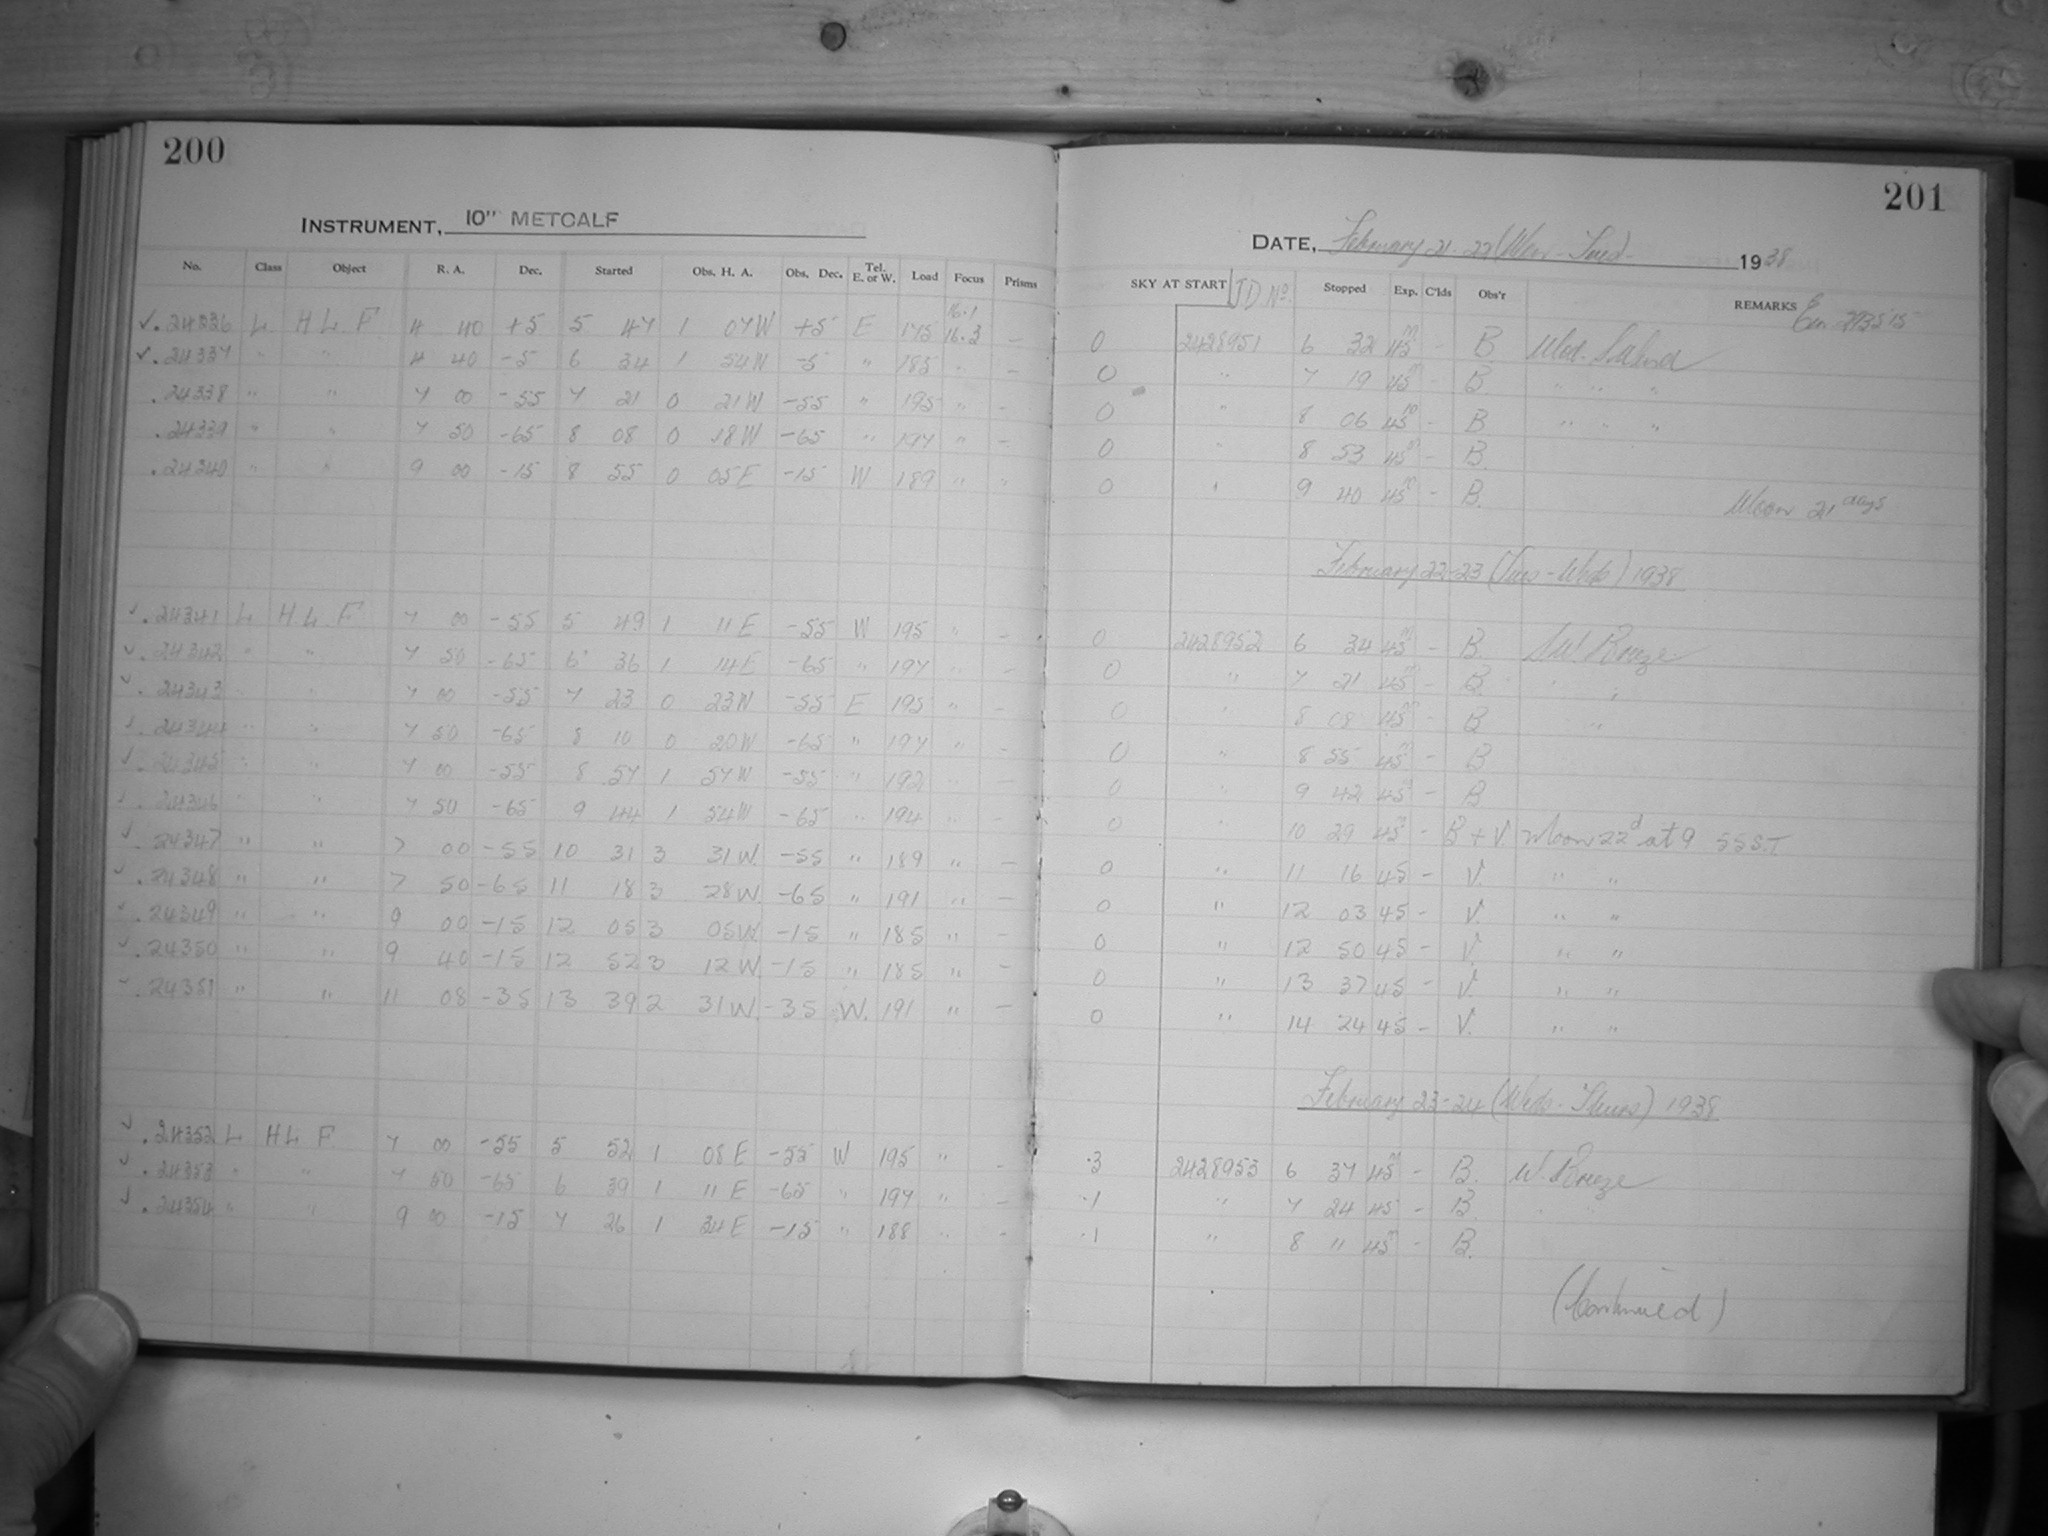 200
INSTRUMENT, 10" METCALF
No. Class Object R. A. Dec. Started Obs. H. A. Obs. Dec. Tel. E. or W. Load Focus Prisms
24336 L H L F 4 40 +5 5 47 1 07W +5 E 175 16.1 16.3 –
24337 " " 4 40 -5 6 34 1 54W -5 " 185 " –
24338 " " 7 00 -55 7 21 0 21W -55 " 195 " –
24339 " " 7 50 -65 8 08 0 18W -65 " 197 " –
24340 " " 9 00 -15 8 55 0 05E -15 W 189 " "
24341 L H L F 7 00 -55 5 49 1 11E -55 W 195 " –
24342 " " 7 50 -65 6 36 1 14E -65 " 197 " –
24343 " 7 00 -55 7 23 0 23W -55 E 195 " –
24344 " " 7 50 -65 8 10 0 20W -65 " 197 " –
24345 " " 7 00 -55 8 57 1 57W -55 " 192 " –
24346 " " 7 50 -65 9 44 1 54W -65 " 194 " –
24347 " " 7 00 -55 10 31 3 31W. -55 " 189 " –
24348 " " 7 50 -65 11 18 3 28W. -65 " 191 " –
24349 " " 9 00 -15 12 05 3 05W. -15 " 185 " –
24350 " " 9 40 -15 12 52 3 12W. -15 " 185 " –
24351 " " 11 08 -35 13 39 2 31W. -35 W. 191 " –
24352 L H L F 7 00 -55 5 52 1 08E -55 W 195 " –
24353 " " 7 50 -65 6 39 1 11E -65 " 197 " –
24354 " " 9 00 -15 7 26 1 34E -15 " 188 " –
201
DATE, February 21-22 (Mon - Tues) 1938
SKY AT START JD No. Stopped Exp. C'lds Obs'r REMARKS
0 2428951 6 32 45m - B
0 " 7 19 45m - B " " "
0 " 8 06 45m - B " " "
0 " 8 53 45m - B.
0 " 9 40 45m - B.
Moon 21 days
February 22-23 (Tues - Weds) 1938
0 2428952 6 34 45m - B. SW. Breeze
0 " 7 21 45m - B "
0 " 8 08 45m - B "
0 " 8 55 45m - B
0 " 9 42 45m - B
0 " 10 29 45m - B + V. Moon 22d at 9 55 S.T
0 " 11 16 45 - V. " "
0 " 12 03 45 - V. " "
0 " 12 50 45 - V. " "
0 " 13 37 45 - V. " "
0 " 14 24 45 - V. " "
February 23-24 (Weds - Thurs) 1938
.3 2428953 6 37 45m - B. W. Breeze
.1 " 7 24 45 - B. " "
.1 " 8 11 45m - B.
(Continued)